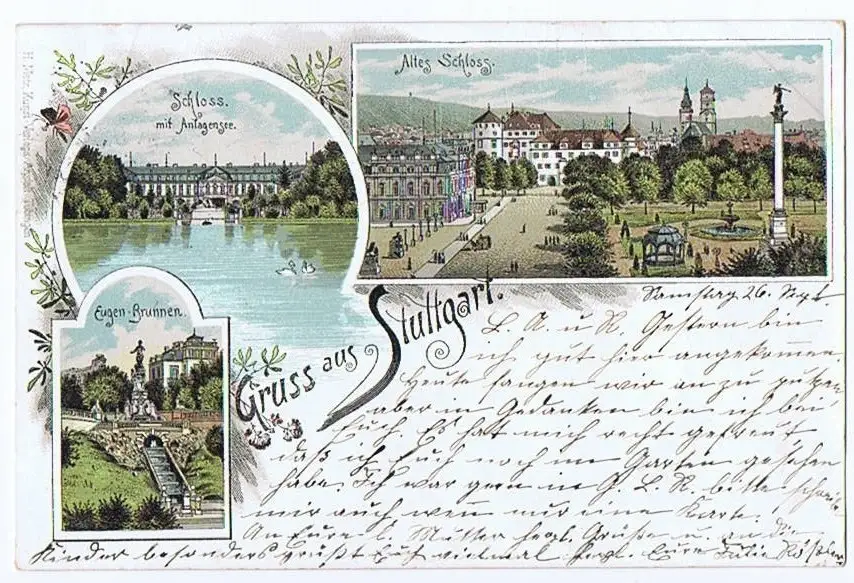 Schloss.
mit Anlagensee.
Altes Schloss.
Eugen-Brunnen.
Gruss aus Stuttgart.
Samstag 26. Sept
L. A. u R, Gestern bin
ich gut hier angekommen
Heute fangen wir an zu putzen
aber in Gedanken bin ich bei
Euch. Es hat mich recht gefreut
daß ich Euch noch im Garten gesehen
habe. Ich war gern in G. L. R. bitte
mir auch wenn nur eine Karte.
An Eure l. Mutter herzl. Grüße u. an die
Kinder besonders grüßt Euch vielmal herzl. Eure